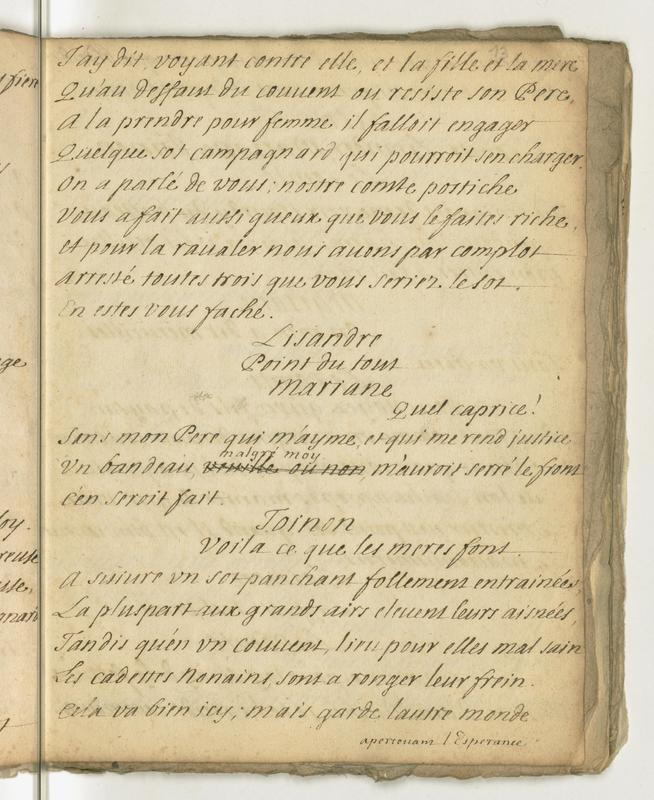 J'ay dit, voyant contre elle, et la fille et la mere
Qu'au deffaut du couvent ou resiste son Pere,
A la prendre pour femme il falloit engager
Quelque sot campagnard qui pourroit s'en charger.
On a parlé de vous; nostre comte postiche
Vous a fait aussi gueux que vous le faites riche,
et pour la ravaler nous avons par complot
arresté toutes trois que vous seriez le sot.
En estes vous faché.
Lisandre
Point du tout
Mariane
Quel caprice!
Sans mon Pere qui m'ayme, et qui me rend justice
malgré moy
Vn bandeau, veuille ou non, m'auroit serré le front
C'en seroit fait.
Toinon
Voila ce que les meres font.
A suivre vn sot panchant follement entrainées,
La pluspart aux grands airs elevent leurs aisnées,
Tandis qu'en vn couvent, lieu pour elles mal sain
Les cadettes Nonains, sont a ronger leur frein.
Cela va bien icy; mais garde l'autre monde
apercevant l'Esperance